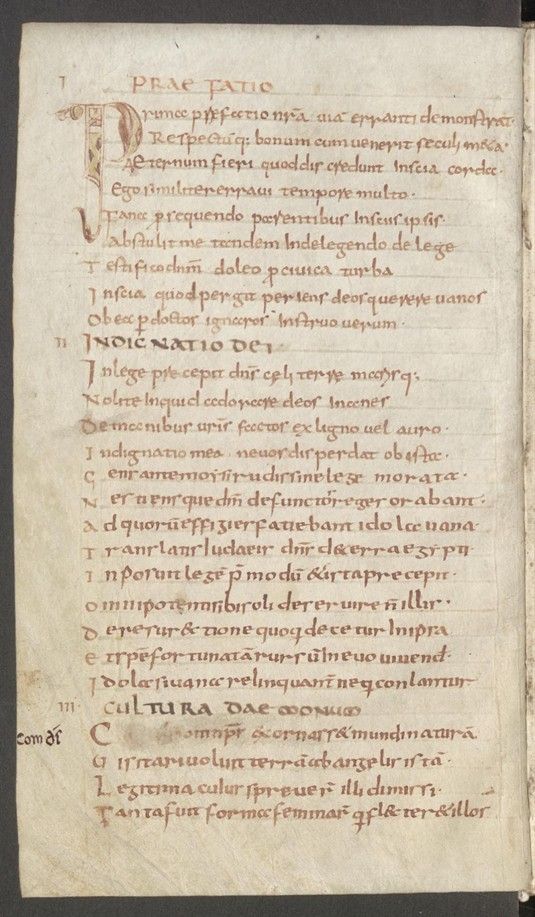 I PRAEFATIO
Prima prefectio nr̄a uiā erranti demonstrat·
Respectūq; bonum cum uenerit seculi meta·
Aeternum fieri quod discredunt inscia corda·
Ego similiter erraui tempore multo·
Fana ꝓsequendo parentibus insciis ipsis·
Abstulit me tandem Inde legendo de lege
Testificor dnm̄ doleo ꝓ ciuica turba
Inscia quod pergit periens deos querere uanos
Ob ea ꝑdoctos ignaros Instruo uerum·
II INDIGNATIO DEI·
In lege precepit dn̄s celi terre marisq;
Nolite Inquid adorare deos Inanes
De manibus uris̄ factos ex ligno uel auro·
Indignatio mea ne uos disperdat ob ista·
Gens ante moisi rudis sine lege morata·
Nesciensque dm̄ defunctos reges orabant·
Ad quorū effigies faciebant idola uana·
Translatis Iudaeis dn̄s de terra egypti
Inposuit legē p̄modū & ista precepit·
Omnipotens sibi soli deseruire n̄ illis·
De resur&tione quoq; decetur In ipsa
Et spē fortunatā rursū In euo uiuend·
Idola si uana relinquant̄ neq; conlantur
III CULTURA DAEMONUM
Com di
C omnips̄ exornass& mundi naturā
Uisitari uoluit terrā ab angelis istā·
Legitima cuius spreuer̄ illi dimissi·
Tanta fuit forma feminar̄ q̄ fl&ter& illos